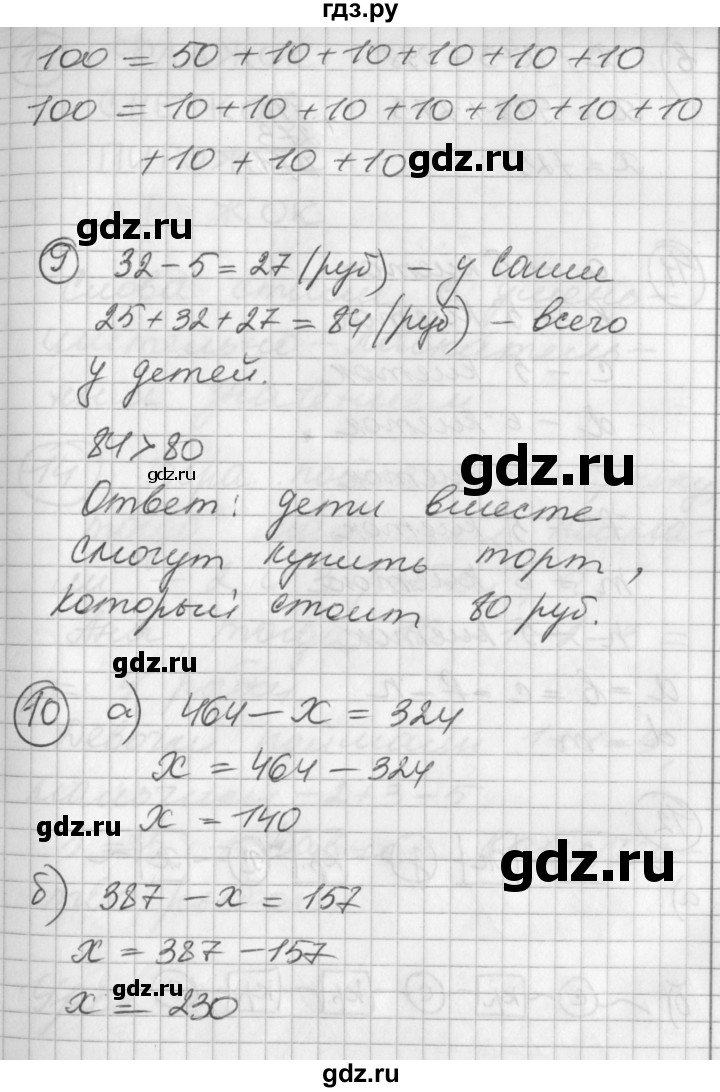 гдз.ру
100 = 50 + 10 + 10 + 10 + 10 + 10
100 = 10 + 10 + 10 + 10 + 10 + 10 + 10
+ 10 + 10 + 10
gdz.ru
gdz.ru
9 32 - 5 = 27 (руб) - у Саши
25 + 32 + 27 = 84 (руб) - всего
у детей.
84 > 80
gdz.ru
gdz.ru
Ответ: дети вместе
смогут купить торт,
который стоит 80 руб.
gdz.ru
10 а) 464 - х = 324
х = 464 - 324
х = 140
gdz.ru
gdz.ru
б) 387 - х = 157
х = 387 - 157
gdz.ru
х = 230
gdz.ru